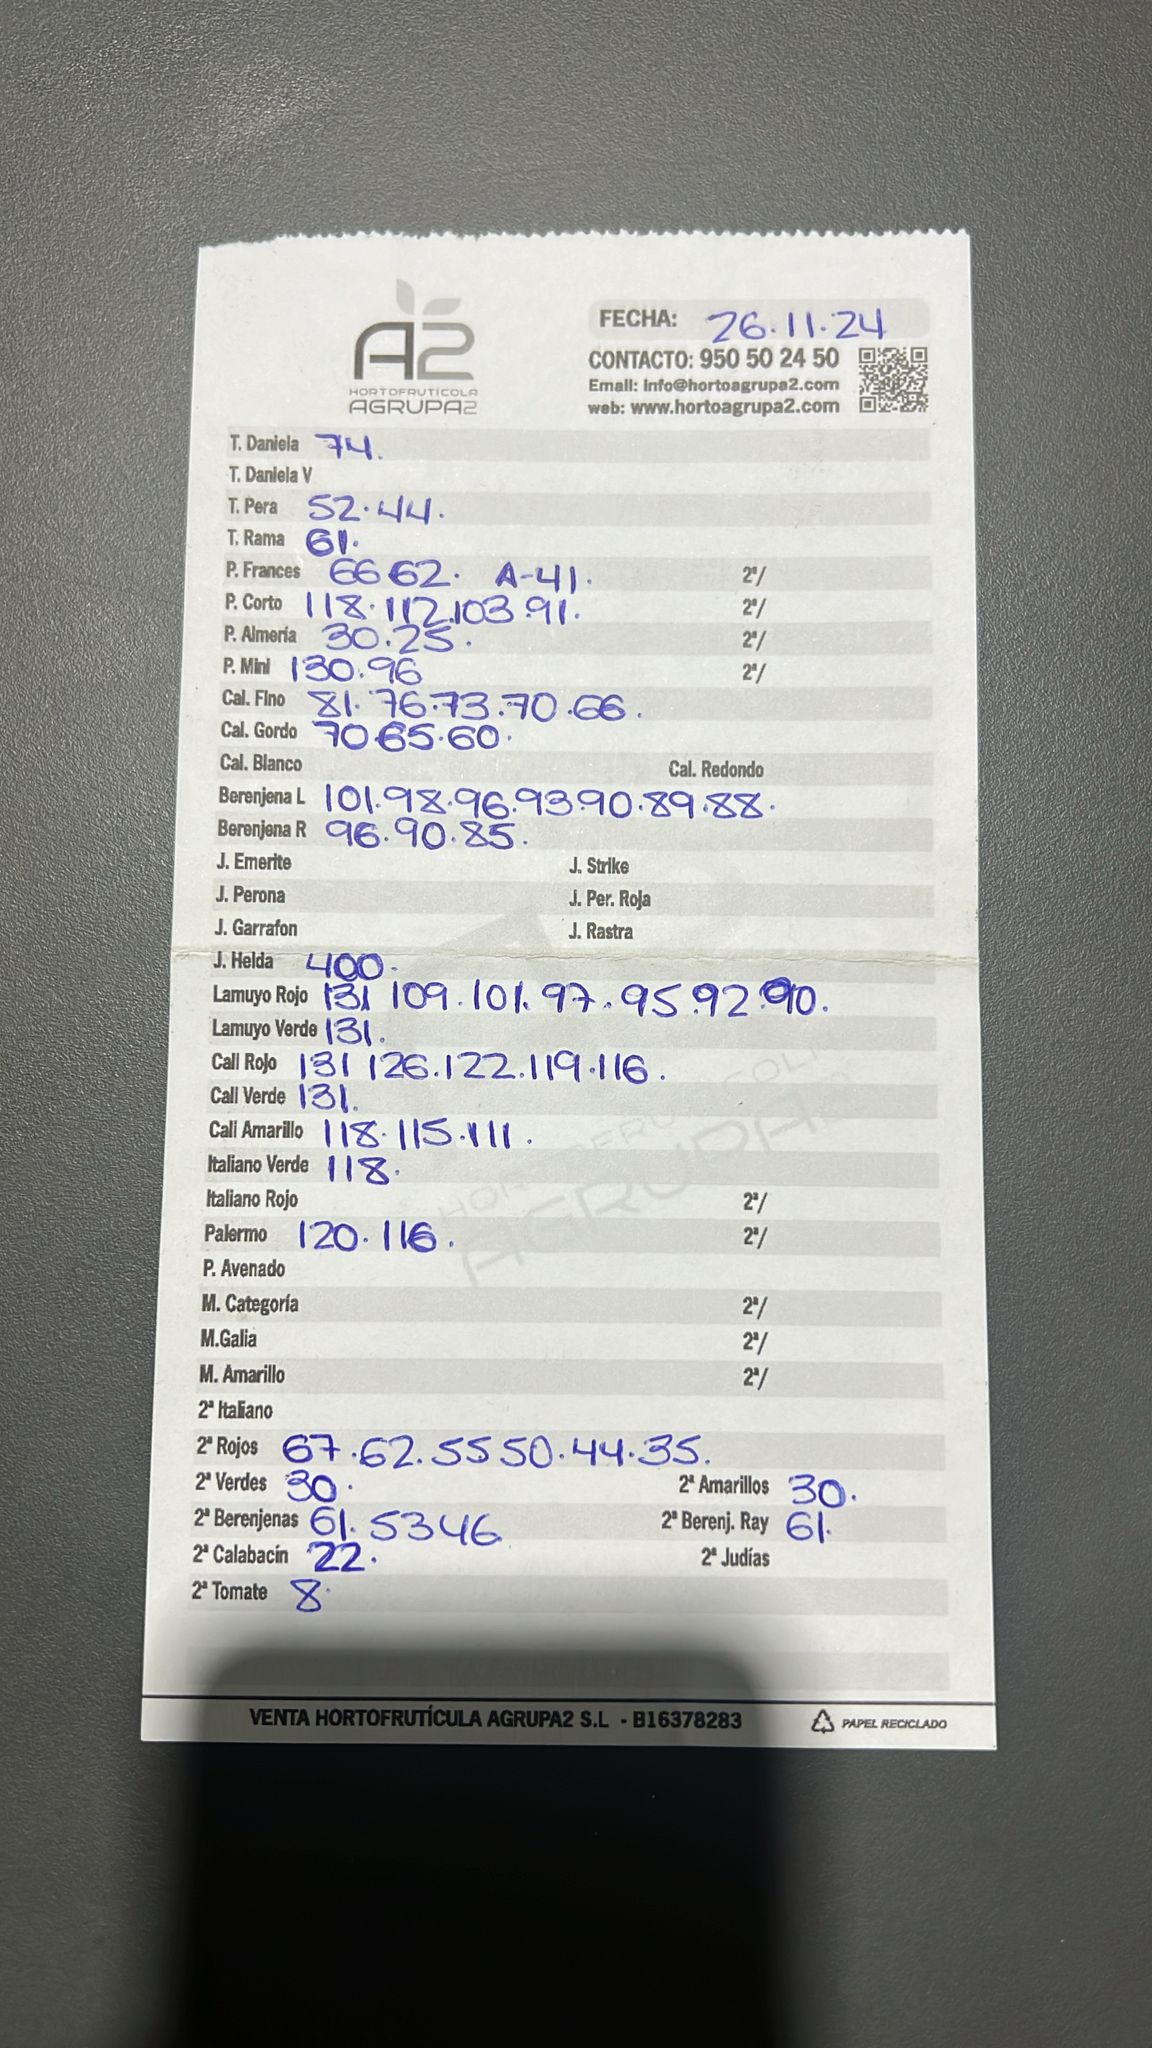 A2
HORTOFRUTÍCOLA
AGRUPA2
FECHA: 26.11.24
CONTACTO: 950 50 24 50
Email: info@hortoagrupa2.com
web: www.hortoagrupa2.com
T. Daniela 74.
T. Daniela V
T. Pera 52.44.
T. Rama 61.
P. Frances 66 62. A-41. 2ª/
P. Corto 118.112.103.91. 2ª/
P. Almería 30.25. 2ª/
P. Mini 130.96 2ª/
Cal. Fino 81.76.73.70.66.
Cal. Gordo 70.65.60.
Cal. Blanco Cal. Redondo
Berenjena L 101.98.96.93.90.89.88.
Berenjena R 96.90.85.
J. Emerite J. Strike
J. Perona J. Per. Roja
J. Garrafon J. Rastra
J. Helda 400.
Lamuyo Rojo 131 109.101.97.95.92.90.
Lamuyo Verde 131.
Cali Rojo 131 126.122.119.116.
Cali Verde 131.
Cali Amarillo 118.115.111.
Italiano Verde 118.
Italiano Rojo 2ª/
Palermo 120.116. 2ª/
P. Avenado
M. Categoría 2ª/
M.Galia 2ª/
M. Amarillo 2ª/
2ª Italiano
2ª Rojos 67.62.55 50.44.35.
2ª Verdes 30. 2ª Amarillos 30.
2ª Berenjenas 61. 53 46 2ª Berenj. Ray 61.
2ª Calabacín 22. 2ª Judías
2ª Tomate 8.
VENTA HORTOFRUTÍCULA AGRUPA2 S.L - B16378283 PAPEL RECICLADO